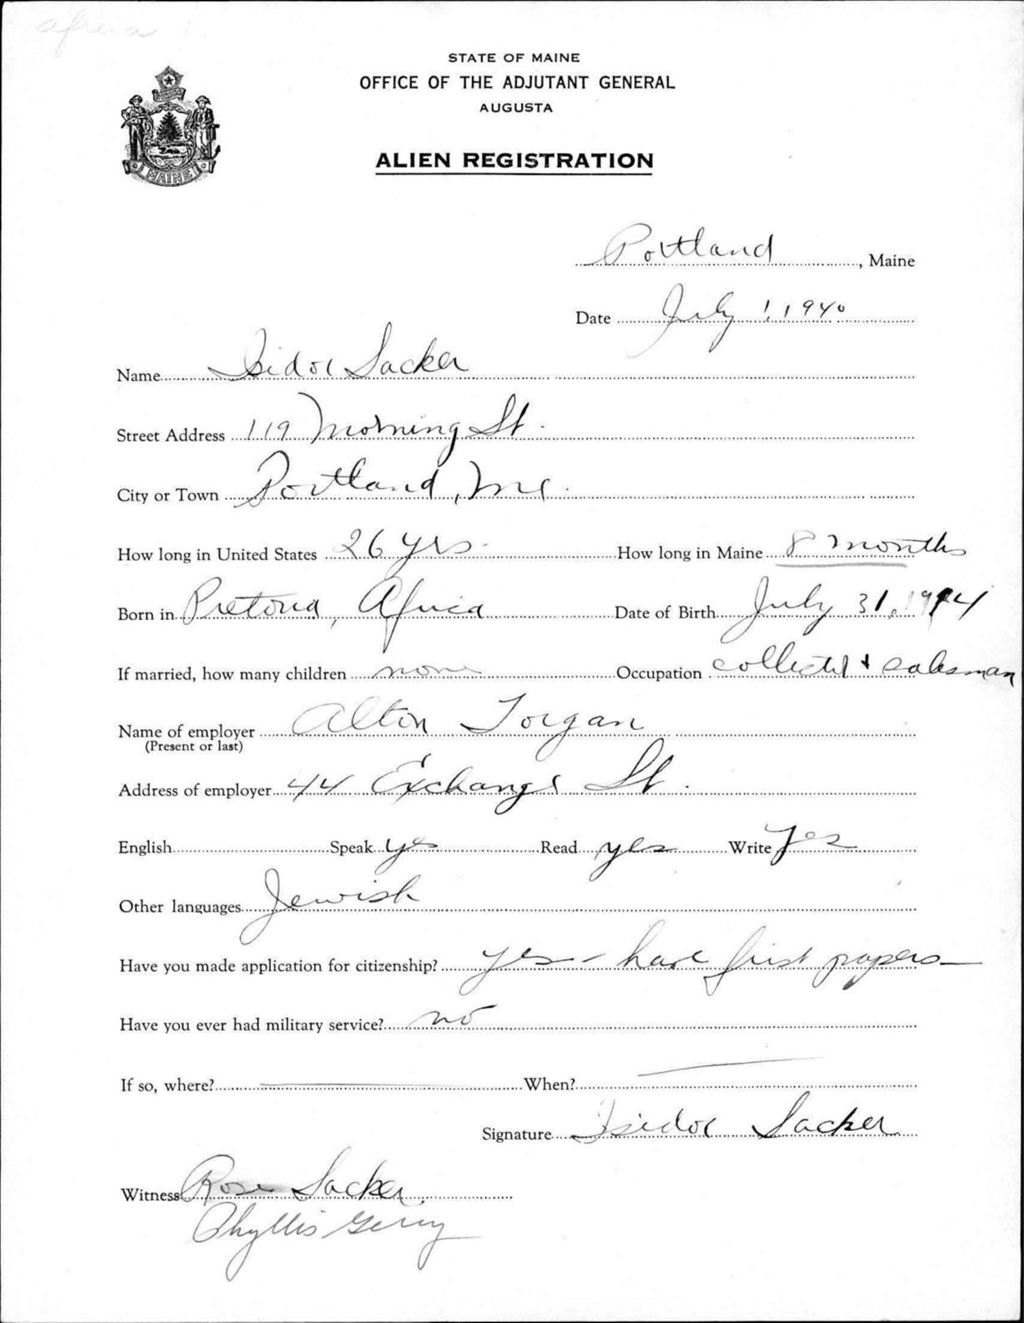 Africa
STATE OF MAINE
OFFICE OF THE ADJUTANT GENERAL
AUGUSTA
ALIEN REGISTRATION
MAINE
Portland, Maine
Date July 1, 1940
Name Isidor Sacker
Street Address 119 Morning St.
City or Town Portland, Me.
How long in United States 26 yrs. How long in Maine 8 months
Born in Pretoria, Africa Date of Birth July 31, 1914
If married, how many children none Occupation collector + salesman
Name of employer Alton Torgan
(Present or last)
Address of employer 44 Exchange St.
English Speak yes Read yes Write Yes
Other languages Jewish
Have you made application for citizenship? yes - have first papers
Have you ever had military service? no
If so, where? When?
Signature Isidor Sacker
Witness Rose Sacker
Phyllis Gerry